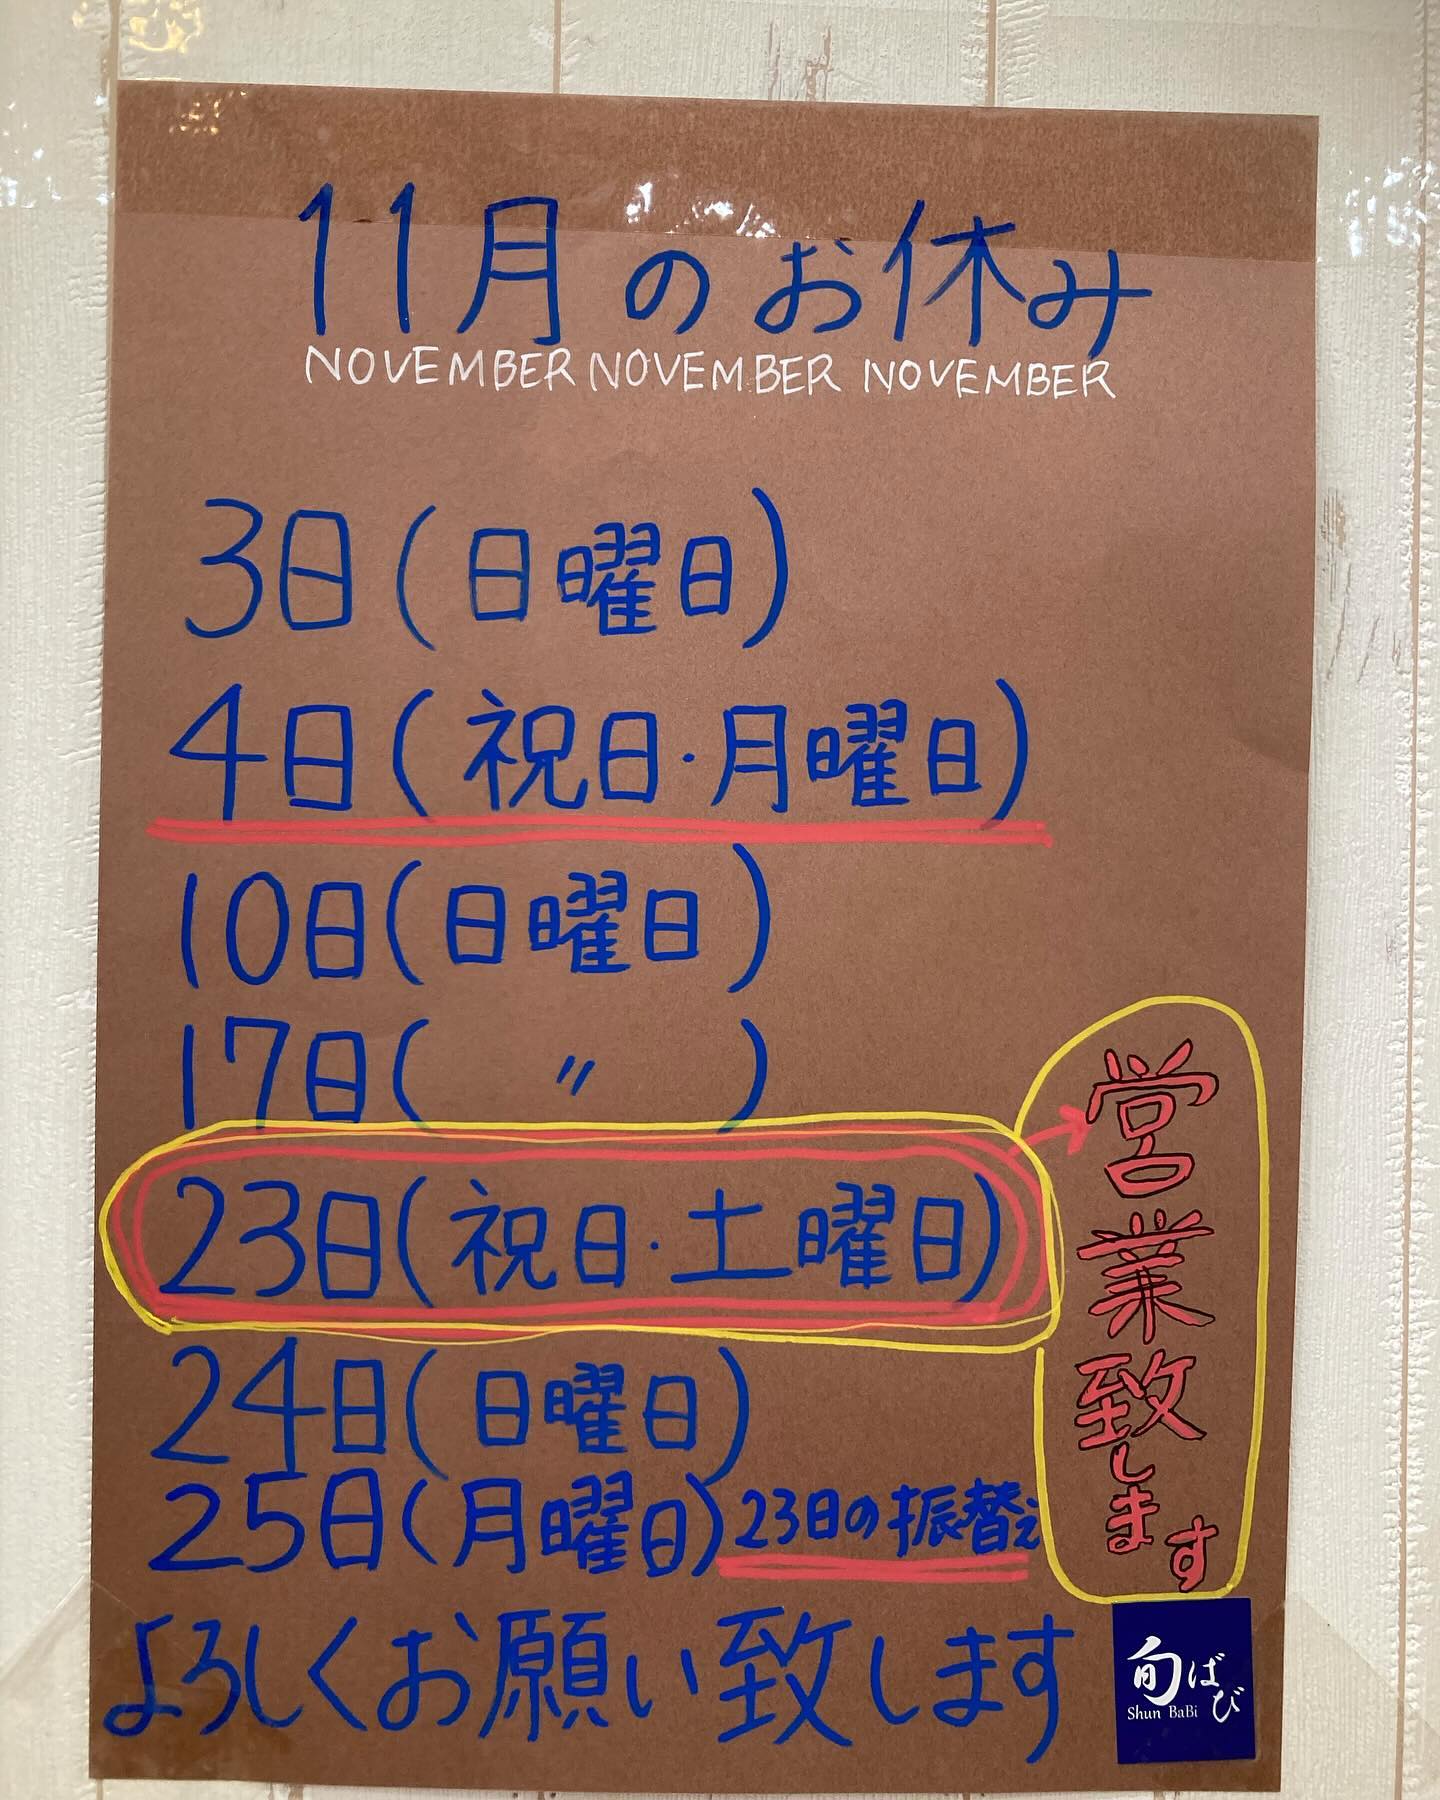 11月のお休み
NOVEMBER NOVEMBER NOVEMBER
3日(日曜日)
4日(祝日・月曜日)
10日(日曜日)
17日( 〃 )
23日(祝日・土曜日)
営業致します
24日(日曜日)
25日(月曜日)23日の振替え
よろしくお願い致します
旬ばび
Shun BaBi